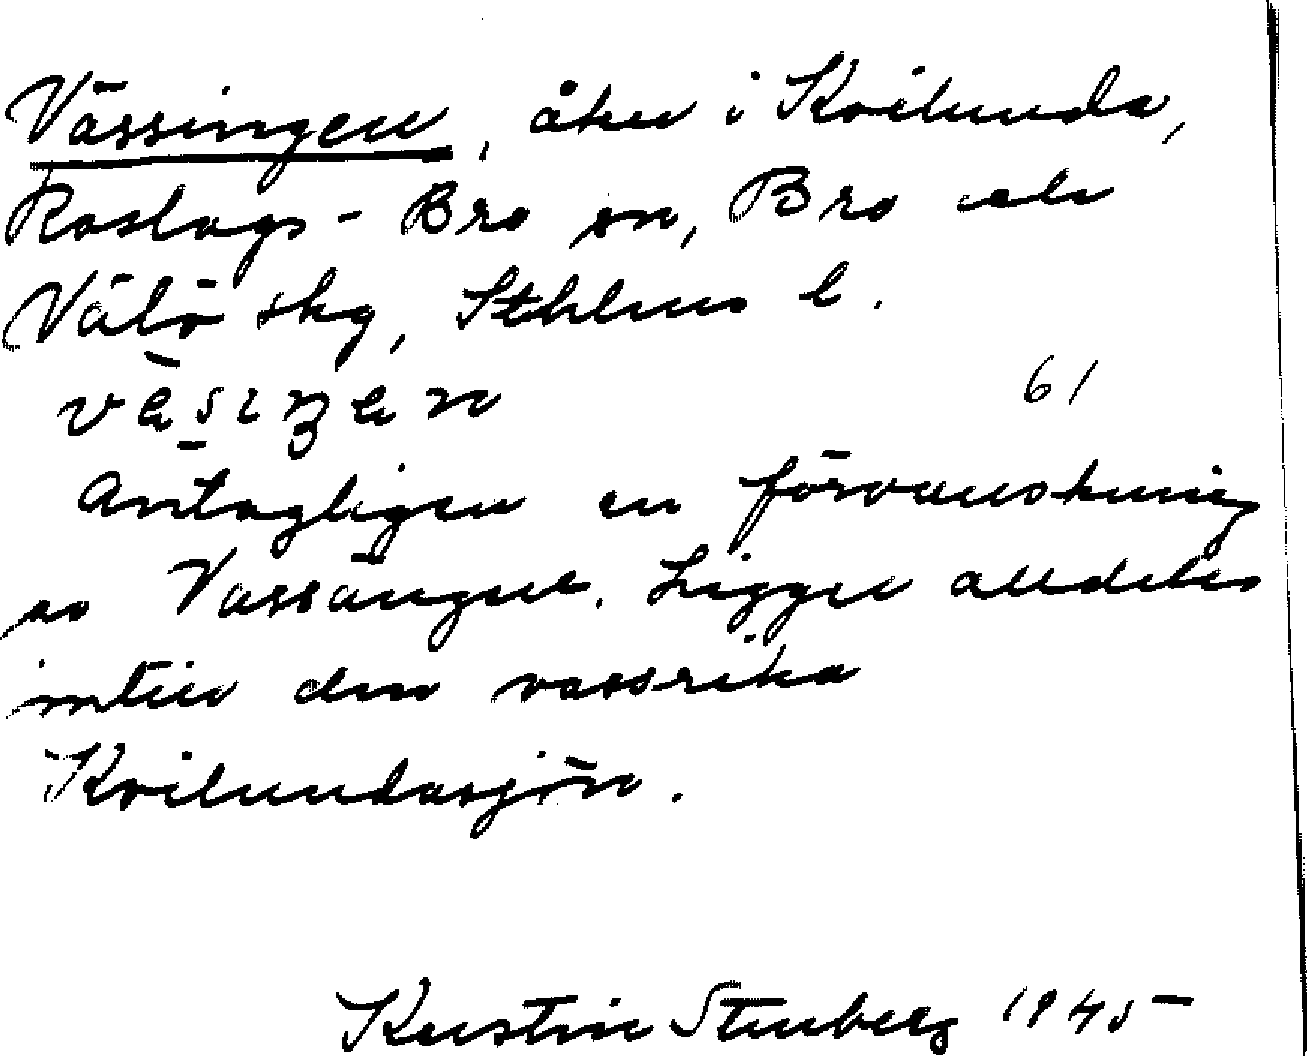 Vässingen, åker i Kvilunda,
Roslags-Bro sn, Bro och
Vätö skg, Sthlms l.
61
Antagligen en förvanskning
av Vassängen. Ligger alldeles
intill den vassrika
Kvilundasjön.
Kerstin Stenberg 1945